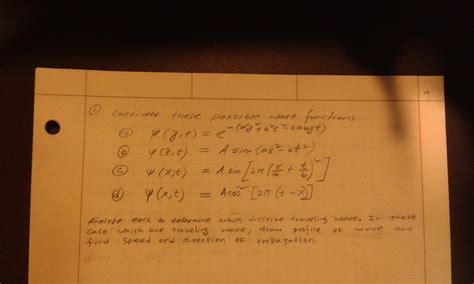 ① Consider these possible wave functions
ⓐ ψ(y,t) = e^-(a²y²+b²t²-2abyt)
ⓑ ψ(z,t) = A sin(az²-bt²)
ⓒ ψ(x,t) = A sin[2π(x/a + t/b)²]
ⓓ ψ(x,t) = A cos²[2π(t-x)]
Analyze each to determine which discribe traveling wave. In those
case which are traveling wave, draw profile of wave and
find speed and direction of propagation.